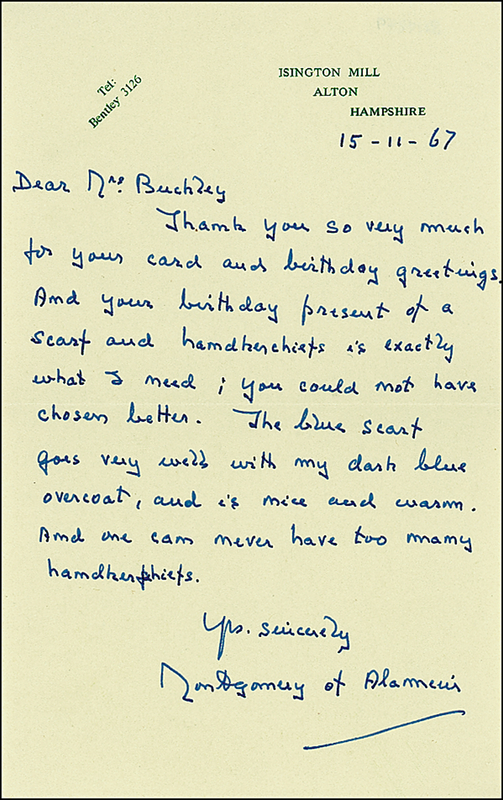 Tel:
Bentley 3126
ISINGTON MILL
ALTON
HAMPSHIRE
15-11-67
Dear Mrs. Buckley
Thank you so very much
for your card and birthday greetings.
And your birthday present of a
scarf and handkerchiefs is exactly
what I need; you could not have
chosen better. The blue scarf
goes very well with my dark blue
overcoat, and is nice and warm.
And one can never have too many
handkerchiefs.
Yrs. sincerely
Montgomery of Alamein